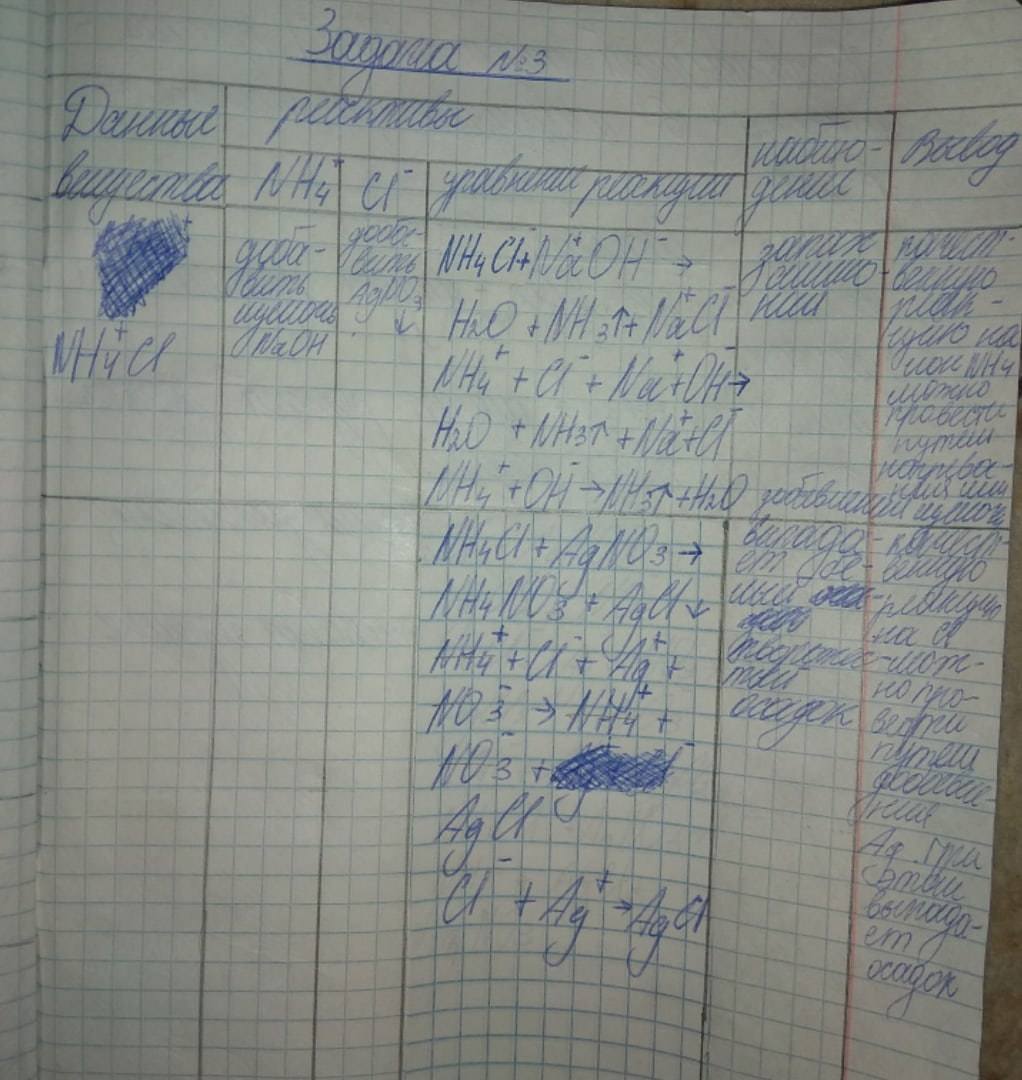 Задача №3
Данные
вещества
реактивы
NH₄⁺
Cl⁻
уравнения реакции
наблю-
дения
Вывод
NH₄⁺Cl⁻
доба-
вить
щелочь
NaOH
доба-
вить
AgNO₃
↓
NH₄Cl⁻+Na⁺OH⁻ →
H₂O + NH₃↑+ Na⁺Cl⁻
NH₄⁺ + Cl⁻ + Na⁺+OH⁻→
H₂O + NH₃↑ + Na⁺+Cl⁻
NH₄⁺ +OH⁻→NH₃↑ +H₂O
запах
аммио-
нии
качест-
венную
реак-
цию на
ион NH₄
можно
провести
путем
добавления щелочи
NH₄Cl + AgNO₃ →
NH₄NO₃⁻ + AgCl ↓
NH₄⁺ + Cl⁻ + Ag⁺ +
NO₃⁻ → NH₄⁺ +
NO₃⁻ +
AgCl
Cl⁻ + Ag⁺→AgCl
выпада-
ет бе-
лый
творожис-
тый
осадок
качест-
венную
реакцию
на Cl
мож-
но про-
вести
путем
добавле-
ния
Ag при
этом
выпада-
ет
осадок